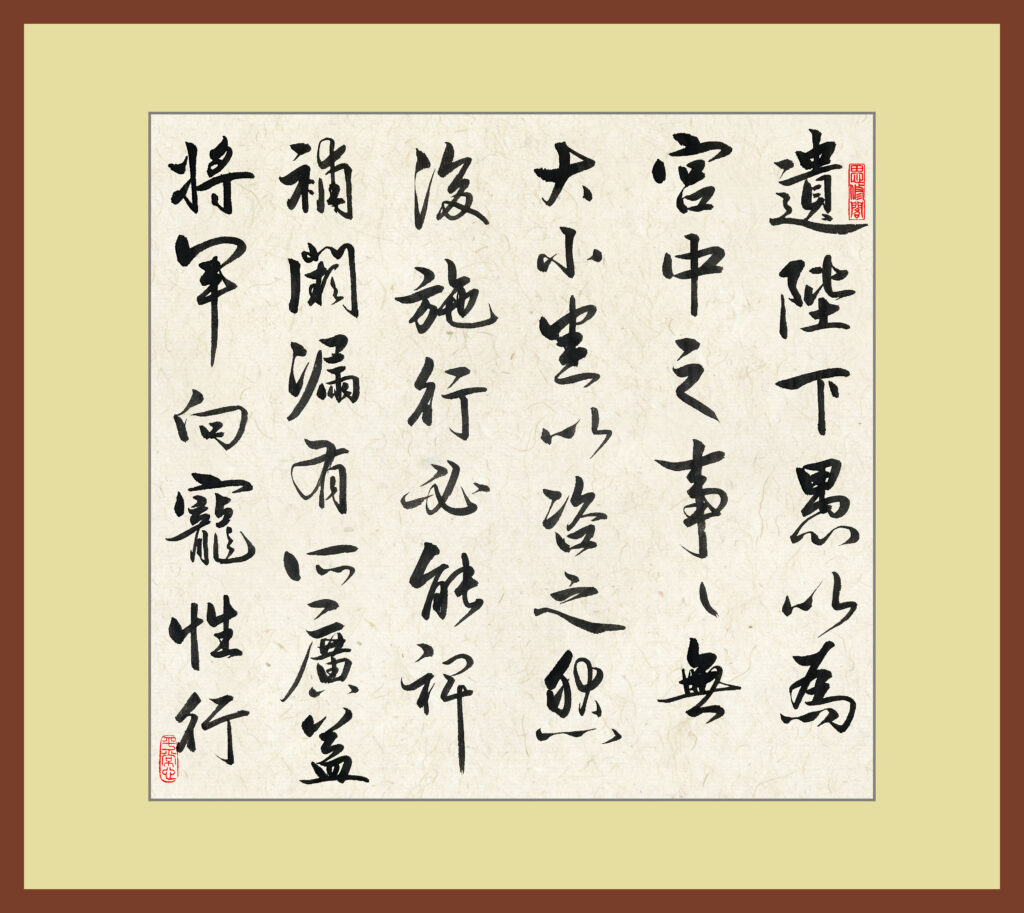 思修閣
遺陛下愚以為
宮中之事々無
大小悉以咨之然
後施行必能裨
補闕漏有所廣益
將軍向寵性行
平常心